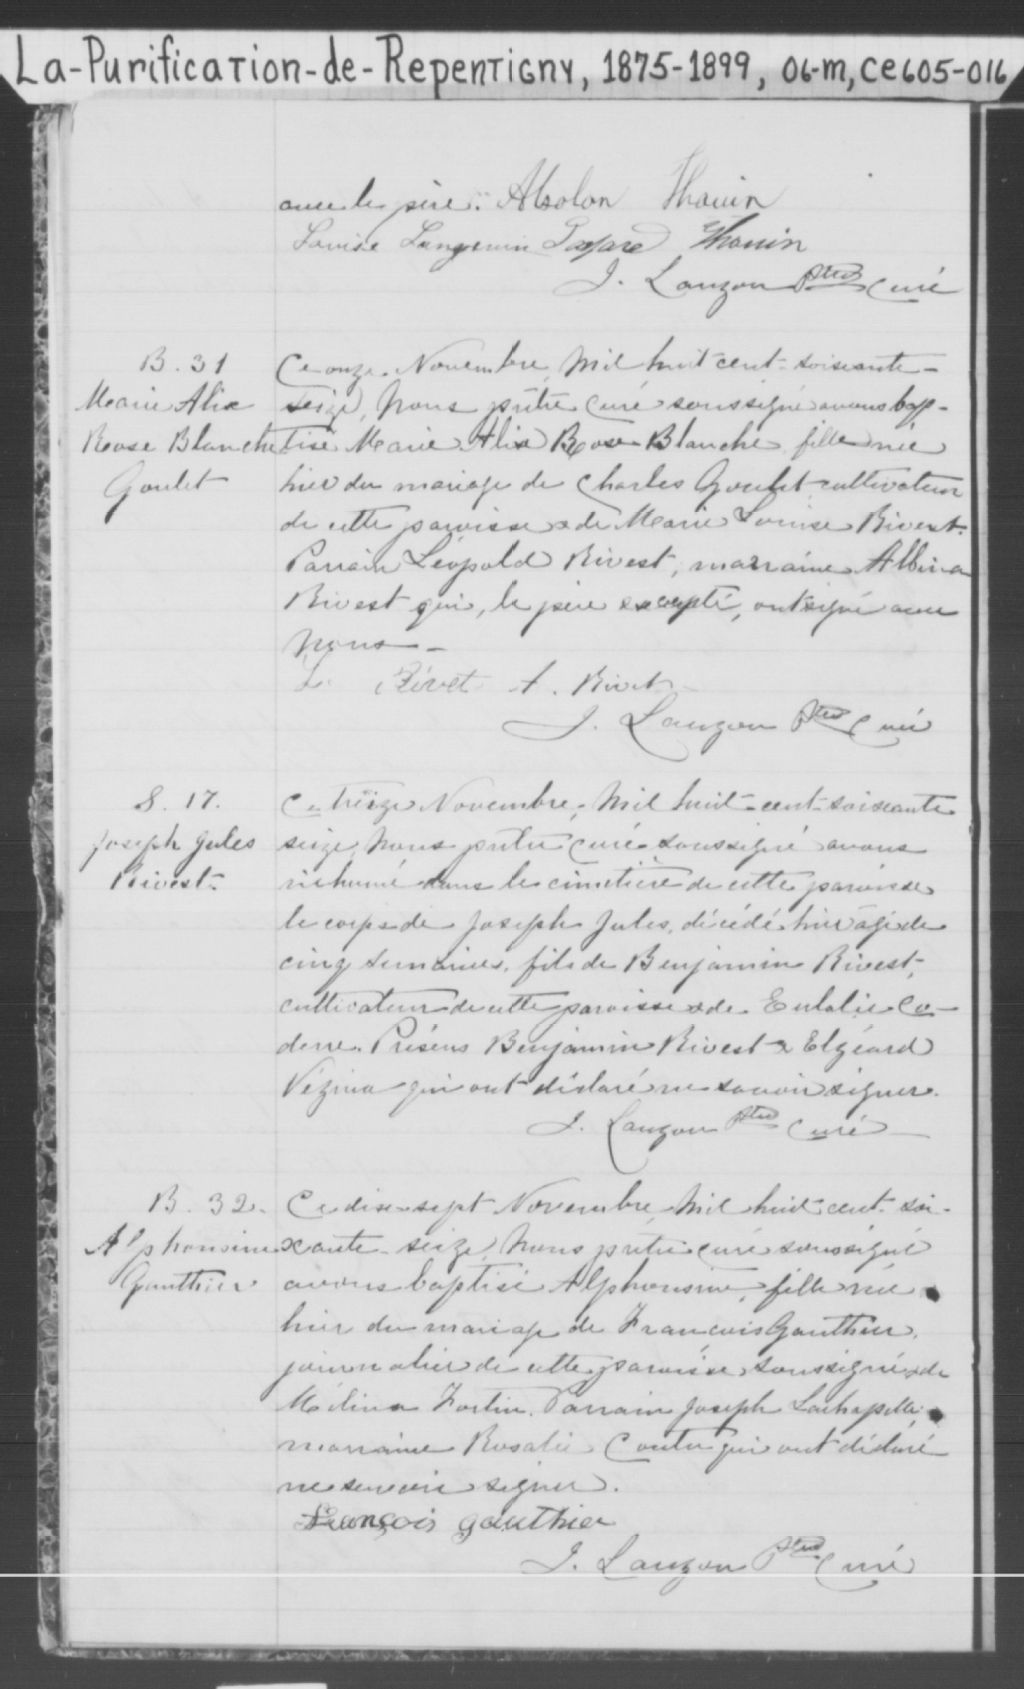 La-Purification-de-Repentigny, 1875-1899, 06-m, ce605-016
avec le père. Absolon Thouin
Louise Langevin Gaspard Thouin
J. Lauzon Ptre Curé
B. 31
Marie Alix
Rose Blanche
Goulet
Ce onze Novembre, mil huit cent-soixante-
seize, Nous prêtre curé soussigné avons bap-
tisé Marie Alix Rose Blanche, fille née
hier du mariage de Charles Goulet cultivateur
de cette paroisse & de Marie Louise Rivest.
Parrain Léopold Rivest, marraine Albina
Rivest qui, le père excepté, ont signé avec
nous-
L. Rivet A. Rivet
J. Lauzon Ptre Curé
S. 17.
Joseph Jules
Rivest
Ce treize Novembre, mil huit-cent-soixante
seize, Nous prêtre curé soussigné avons
inhumé dans le cimetière de cette paroisse
le corps de Joseph Jules, décédé hier âgé de
cinq semaines, fils de Benjamin Rivest,
cultivateur de cette paroisse & de Eulalie Co-
derre. Présens Benjamin Rivest & Elzéard
Vézina qui ont déclaré ne savoir signer.
J. Lauzon Ptre Curé
B. 32.
Alphonsine
Gauthier
Ce dix-sept Novembre, mil huit-cent-soi-
xante-seize, Nous prêtre curé soussigné
avons baptisé Alphonsine, fille née
hier du mariage de François Gauthier,
journalier de cette paroisse, soussigné & de
Mélina Fortin. Parrain Joseph Lachapelle,
marraine Rosalie Coutu qui ont déclaré
ne savoir signer.
François gauthier
J. Lauzon Ptre Curé